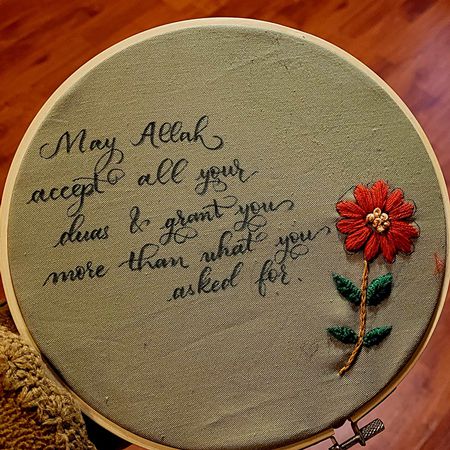 May Allah
accept all your
duas & grant you
more than what you
asked for.